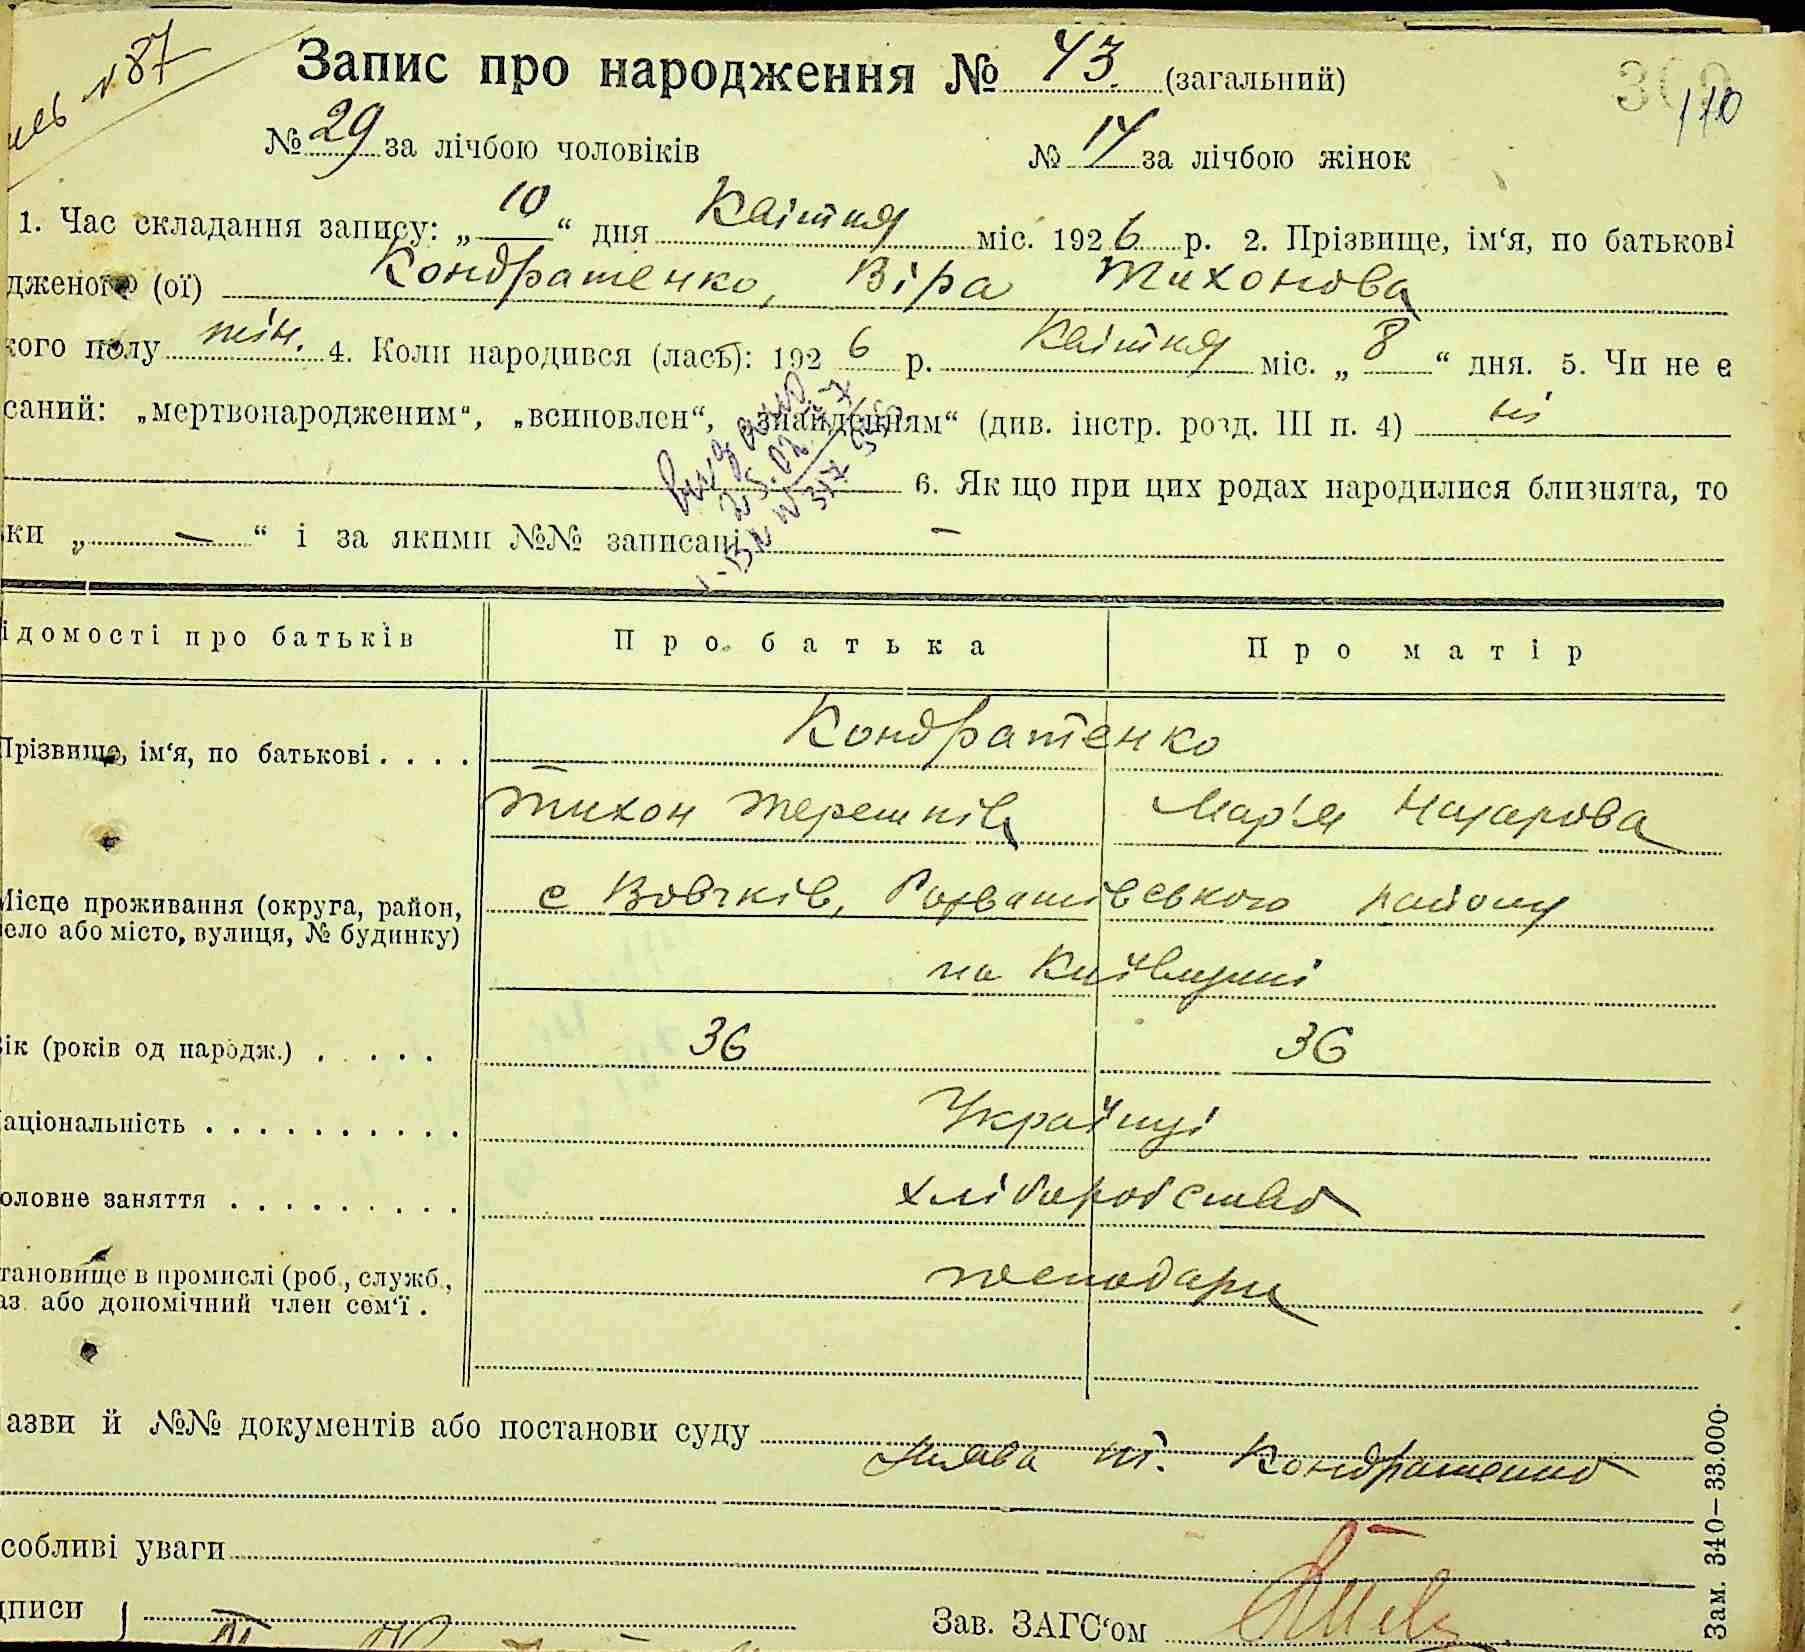 № 87
Запис про народження № 43. (загальний)
110
№ 29 за лічбою чоловіків № 14 за лічбою жінок
1. Час складання запису: „ 10 “ дня Квітня міс. 192 6 р. 2. Прізвище, ім‘я, по батькові
дженого (ої) Кондратенко, Віра Тихонова
кого полу жін. 4. Коли народився (лась): 192 6 р. Квітня міс. „ 8 “ дня. 5. Чи не є
саний: „мертвонародженим“, „всиновлен“, „знайденням“ (див. інстр. розд. III п. 4) ні
видано
6. Як що при цих родах народилися близнята, то
ки „ — “ і за якими №№ записані —
ідомості про батьків Про батька Про матір
Прізвище, ім‘я, по батькові . . . . Кондратенко
Тихон Терешків Мар'я Назарова
Місце проживання (округа, район, с Вовчків, Розважівського району
ело або місто, вулиця, № будинку)
на Київщині
ік (років од народж.) . . . . . 36 36
аціональність . . . . . . . . . . Українці
оловне заняття . . . . . . . . . хліборобство
тановище в промислі (роб., служб., господари
аз. або допомічний член сем‘ї .
азви й №№ документів або постанови суду Заява Т. Кондратенко
собливі уваги
дписи Зав. ЗАГС‘ом
Зам. 340—33.000.